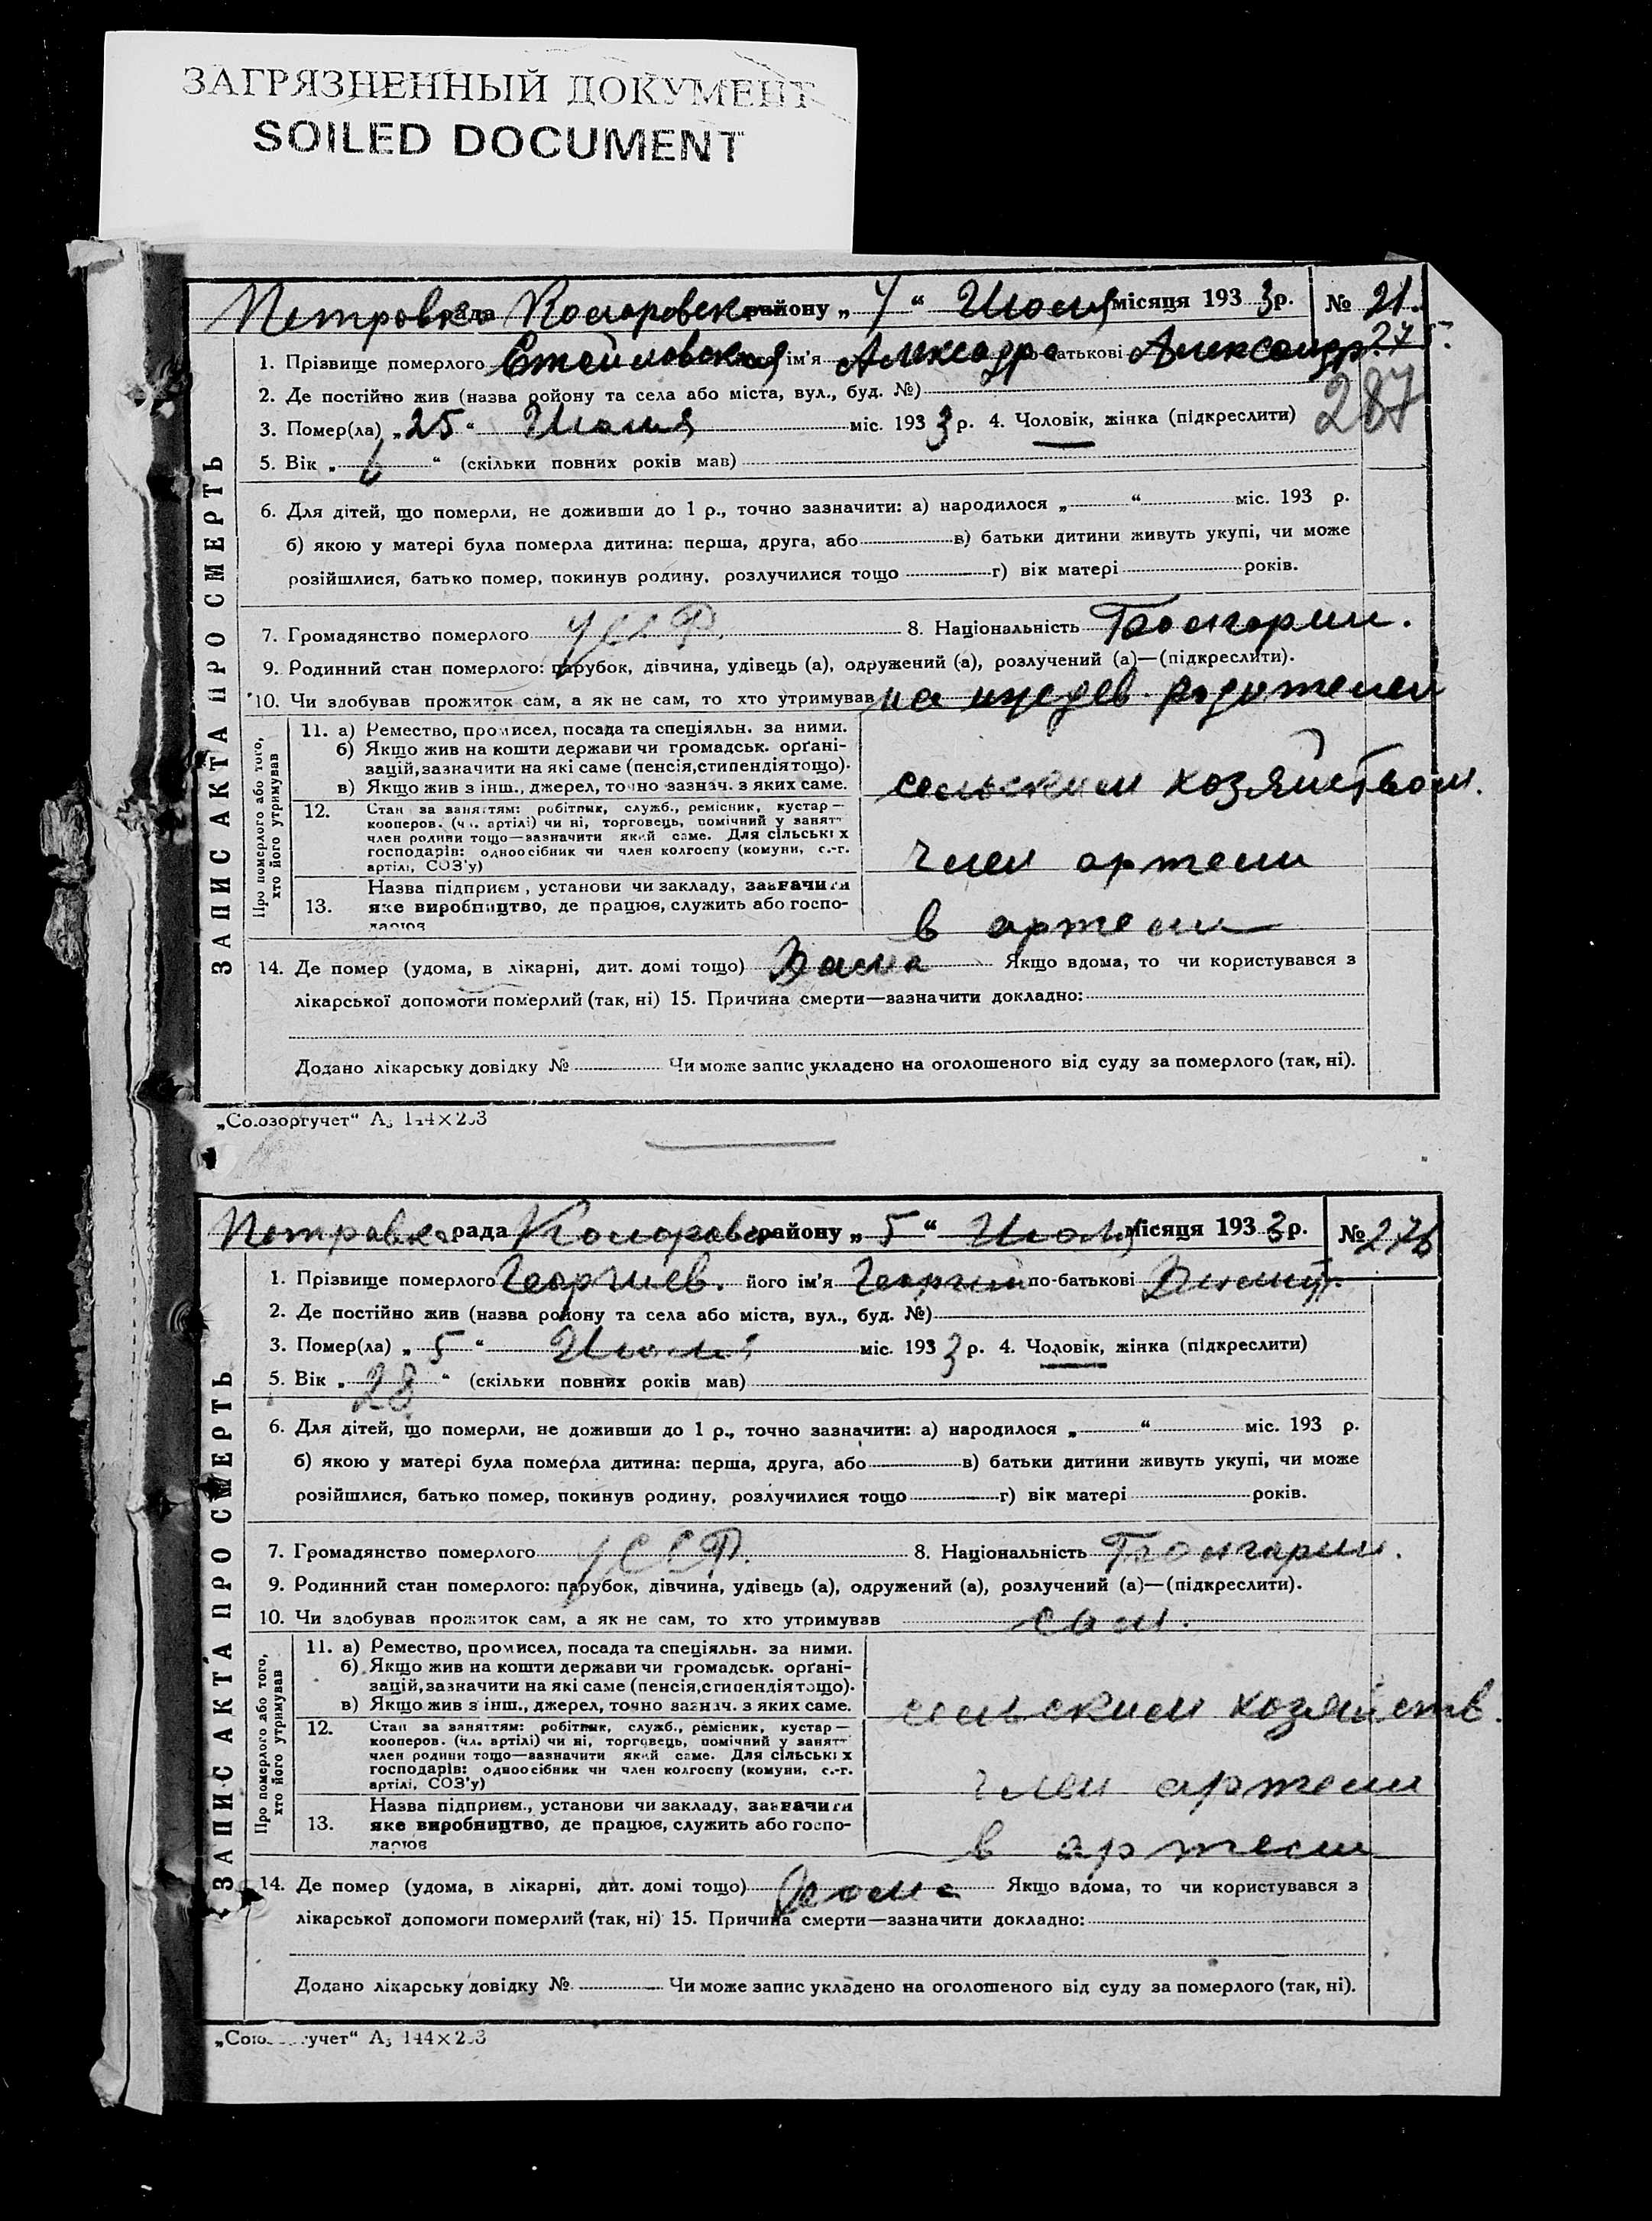 ЗАГРЯЗНЕННЫЙ ДОКУМЕНТ
SOILED DOCUMENT
Петровка рада Коларовск району „ 4 “ Июля місяця 193 3 р. № 21.
275.
1. Прізвище померлого Стойловская ім'я Александра батькові Александр.
287
2. Де постійно жив (назва району та села або міста, вул., буд. №)
3. Помер(ла) „ 25 “ Июля міс. 193 3 р. 4. Чоловік, жінка (підкреслити)
5. Вік „ 6 “ (скільки повних років мав)
6. Для дітей, що померли, не доживши до 1 р., точно зазначити: а) народилося „ “ міс. 193 р.
б) якою у матері була померла дитина: перша, друга, або в) батьки дитини живуть укупі, чи може
розійшлися, батько помер, покинув родину, розлучилися тощо г) вік матері років.
7. Громадянство померлого УССР. 8. Національність Болгарин.
9. Родинний стан померлого: парубок, дівчина, удівець (а), одружений (а), розлучений (а)—(підкреслити).
10. Чи здобував прожиток сам, а як не сам, то хто утримував на иждев. родителей
ЗАПИС АКТА ПРО СМЕРТЬ
Про померлого або того, хто його утримував
11. а) Ремество, промисел, посада та спеціяльн. за ними.
б) Якщо жив на кошти держави чи громадськ. орґані-
зацій, зазначити на які саме (пенсія, стипендія тощо).
в) Якщо жив з інш., джерел, точно зазнач. з яких саме.
сельским хозяйством.
12. Стан за заняттям: робітник, служб., ремісник, кустар—
кооперов. (чл. артілі) чи ні, торговець, помічний у занятт
член родини тощо—зазначити який саме. Для сільськіх
господарів: одноосібник чи член колгоспу (комуни, с.-г.
артілі, СОЗ'у)
член артели
Назва підприєм., установи чи закладу, зазначити
13. яке виробництво, де працює, служить або госпо-
дарює
в артели
14. Де помер (удома, в лікарні, дит. домі тощо) Дома Якщо вдома, то чи користувався з
лікарської допомоги померлий (так, ні) 15. Причина смерти—зазначити докладно:
Додано лікарську довідку № Чи може запис укладено на оголошеного від суду за померлого (так, ні).
„Союзоргучет“ А5 144×203
Петровка рада Коларовск району „ 5 “ Июля місяця 193 3 р. № 276
1. Прізвище померлого Георгиев. його ім'я Георгий по-батькові Димит.
2. Де постійно жив (назва району та села або міста, вул., буд. №)
3. Помер(ла) „ 5 “ Июля міс. 193 3 р. 4. Чоловік, жінка (підкреслити)
5. Вік „ 28 “ (скільки повних років мав)
6. Для дітей, що померли, не доживши до 1 р., точно зазначити: а) народилося „ “ міс. 193 р.
б) якою у матері була померла дитина: перша, друга, або в) батьки дитини живуть укупі, чи може
розійшлися, батько помер, покинув родину, розлучилися тощо г) вік матері років.
7. Громадянство померлого УССР. 8. Національність Болгарин.
9. Родинний стан померлого: парубок, дівчина, удівець (а), одружений (а), розлучений (а)—(підкреслити).
10. Чи здобував прожиток сам, а як не сам, то хто утримував сам.
ЗАПИС АКТА ПРО СМЕРТЬ
Про померлого або того, хто його утримував
11. а) Ремество, промисел, посада та спеціяльн. за ними.
б) Якщо жив на кошти держави чи громадськ. орґані-
зацій, зазначити на які саме (пенсія, стипендія тощо).
в) Якщо жив з інш., джерел, точно зазнач. з яких саме.
сельским хозяйств.
12. Стан за заняттям: робітник, служб., ремісник, кустар—
кооперов. (чл. артілі) чи ні, торговець, помічний у занятт
член родини тощо—зазначити який саме. Для сільськіх
господарів: одноосібник чи член колгоспу (комуни, с.-г.
артілі, СОЗ'у)
член артели
Назва підприєм., установи чи закладу, зазначити
13. яке виробництво, де працює, служить або госпо-
дарює
в артели
14. Де помер (удома, в лікарні, дит. домі тощо) Дома Якщо вдома, то чи користувався з
лікарської допомоги померлий (так, ні) 15. Причина смерти—зазначити докладно:
Додано лікарську довідку № Чи може запис укладено на оголошеного від суду за померлого (так, ні).
„Союзоргучет“ А5 144×203